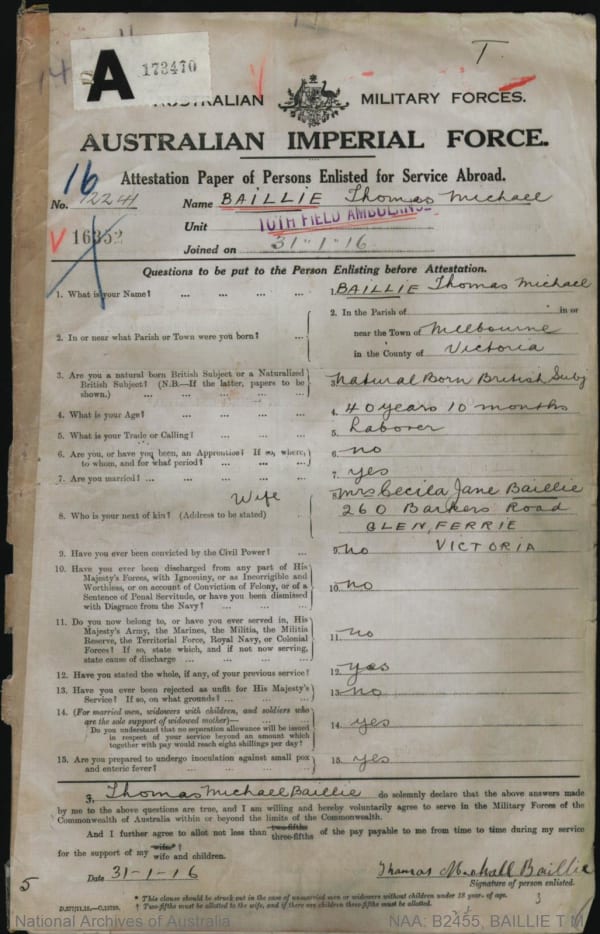 A 173470
T
AUSTRALIAN MILITARY FORCES.
AUSTRALIAN IMPERIAL FORCE.
Attestation Paper of Persons Enlisted for Service Abroad.
16
No. 12241 Name BAILLIE Thomas Michael
16352 Unit 10TH FIELD AMBULANCE
Joined on 31-1-16
Questions to be put to the Person Enlisting before Attestation.
1. What is your Name? ... ... ... ... 1. BAILLIE Thomas Michael
2. In or near what Parish or Town were you born? ... 2. In the Parish of in or
near the Town of Melbourne
in the County of Victoria
3. Are you a natural born British Subject or a Naturalized
British Subject? (N.B.—If the latter, papers to be
shown.) ... ... ... ... ... 3. Natural Born British Subj
4. What is your Age? ... ... ... ... 4. 40 years 10 months
5. What is your Trade or Calling? ... ... ... 5. Laborer
6. Are you, or have you been, an Apprentice? If so, where,
to whom, and for what period? ... ... ... 6. no
7. Are you married? ... ... ... ... ... 7. yes
Wife
8. Who is your next of kin? (Address to be stated) 8. Mrs Cecila Jane Baillie
260 Barkers Road
GLEN, FERRIE
VICTORIA
9. Have you ever been convicted by the Civil Power? ... 9. no
10. Have you ever been discharged from any part of His
Majesty's Forces, with Ignominy, or as Incorrigible and
Worthless, or on account of Conviction of Felony, or of a
Sentence of Penal Servitude, or have you been dismissed
with Disgrace from the Navy? ... ... ... 10. no
11. Do you now belong to, or have you ever served in, His
Majesty's Army, the Marines, the Militia, the Militia
Reserve, the Territorial Force, Royal Navy, or Colonial
Forces? If so, state which, and if not now serving,
state cause of discharge ... ... ... ... 11. no
12. Have you stated the whole, if any, of your previous service? 12. yes
13. Have you ever been rejected as unfit for His Majesty's
Service? If so, on what grounds? ... ... ... 13. no
14. (For married men, widowers with children, and soldiers who
are the sole support of widowed mother)—
Do you understand that no separation allowance will be issued
in respect of your service beyond an amount which
together with pay would reach eight shillings per day? 14. yes
15. Are you prepared to undergo inoculation against small pox
and enteric fever? ... ... ... ... 15. yes
I, Thomas Michael Baillie do solemnly declare that the above answers made
by me to the above questions are true, and I am willing and hereby voluntarily agree to serve in the Military Forces of the
Commonwealth of Australia within or beyond the limits of the Commonwealth.
And I further agree to allot not less than two-fifths three-fifths of the pay payable to me from time to time during my service
for the support of my wife* † wife and children.
Date 31-1-16 Thomas Michall Baillie
Signature of person enlisted.
5
* This clause should be struck out in the case of unmarried men or widowers without children under 18 years of age.
† Two-fifths must be allotted to the wife, and if there are children three-fifths must be allotted.
3
National Archives of Australia NAA: B2455, BAILLIE T M